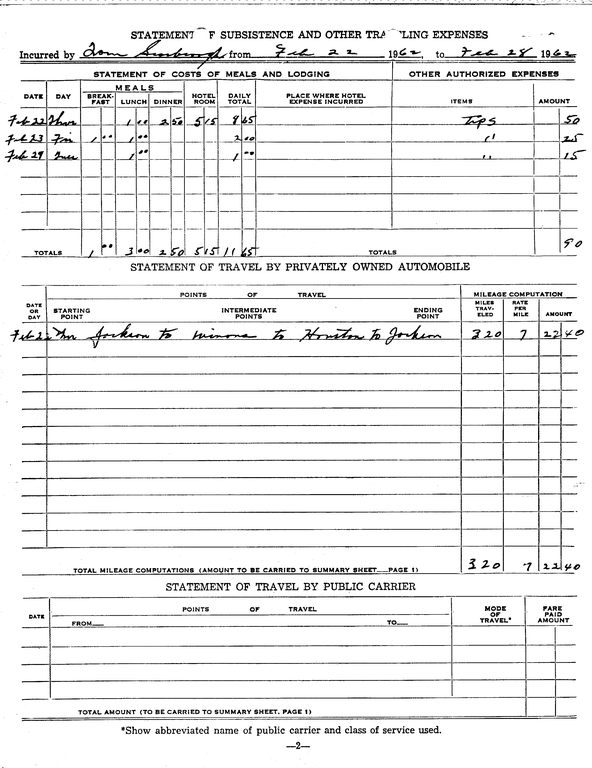 STATEMENT F SUBSISTENCE AND OTHER TRA LING EXPENSES
Incurred by Tom Scarbrough from Feb 22 1962, to Feb 28, 1962
STATEMENT OF COSTS OF MEALS AND LODGING OTHER AUTHORIZED EXPENSES
DATE DAY MEALS BREAK-FAST LUNCH DINNER HOTEL ROOM DAILY TOTAL PLACE WHERE HOTEL EXPENSE INCURRED ITEMS AMOUNT
Feb 22 Thur 1 00 2 50 5 15 8 65 Tips 50
Feb 23 Fri 1 00 1 00 2 00 " 25
Feb 29 1 00 1 00 " 15
TOTALS 1 00 3 00 2 50 5 15 11 65 TOTALS 90
STATEMENT OF TRAVEL BY PRIVATELY OWNED AUTOMOBILE
DATE OR DAY POINTS OF TRAVEL MILEAGE COMPUTATION
STARTING POINT INTERMEDIATE POINTS ENDING POINT MILES TRAV-ELED RATE PER MILE AMOUNT
Feb 22 Thur Jackson to Winona to Houston to Jackson 320 7 22 40
TOTAL MILEAGE COMPUTATIONS (AMOUNT TO BE CARRIED TO SUMMARY SHEET.....PAGE 1) 320 7 22 40
STATEMENT OF TRAVEL BY PUBLIC CARRIER
DATE POINTS OF TRAVEL MODE OF TRAVEL* FARE PAID AMOUNT
FROM TO
TOTAL AMOUNT (TO BE CARRIED TO SUMMARY SHEET. PAGE 1)
*Show abbreviated name of public carrier and class of service used.
—2—